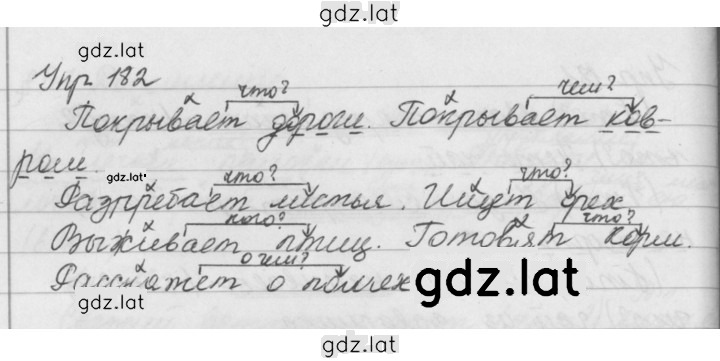 gdz.lat
gdz.lat
Упр 182
что? чем?
Покрывает дороги. Покрывает ков-
ром.
gdz.lat
что? что?
Разгребает листья. Ищет орех.
кого? что?
Выживает птиц. Готовят корм.
о чем?
Расскажет о пчелах
gdz.lat
gdz.lat